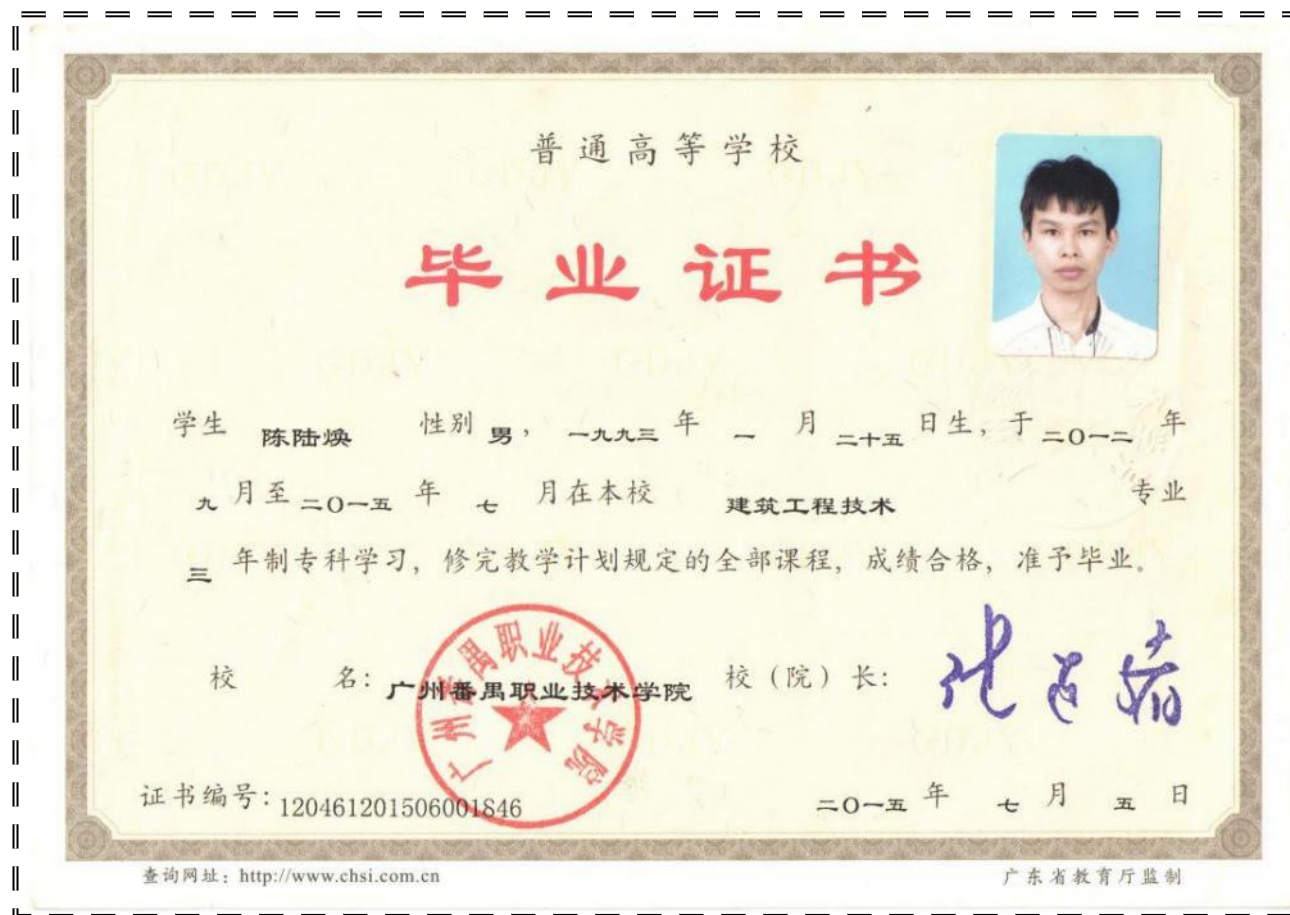 普通高等学校
毕业证书
学生 陈陆焕 性别 男，一九九三 年 一 月 二十五 日生，于 二〇一二 年
九 月至 二〇一五 年 七 月在本校 建筑工程技术 专业
三 年制专科学习，修完教学计划规定的全部课程，成绩合格，准予毕业。
校 名：广州番禺职业技术学院 校（院）长：
广州番禺职业技术学院
证书编号：120461201506001846 二〇一五 年 七 月 五 日
查询网址：http://www.chsi.com.cn 广东省教育厅监制